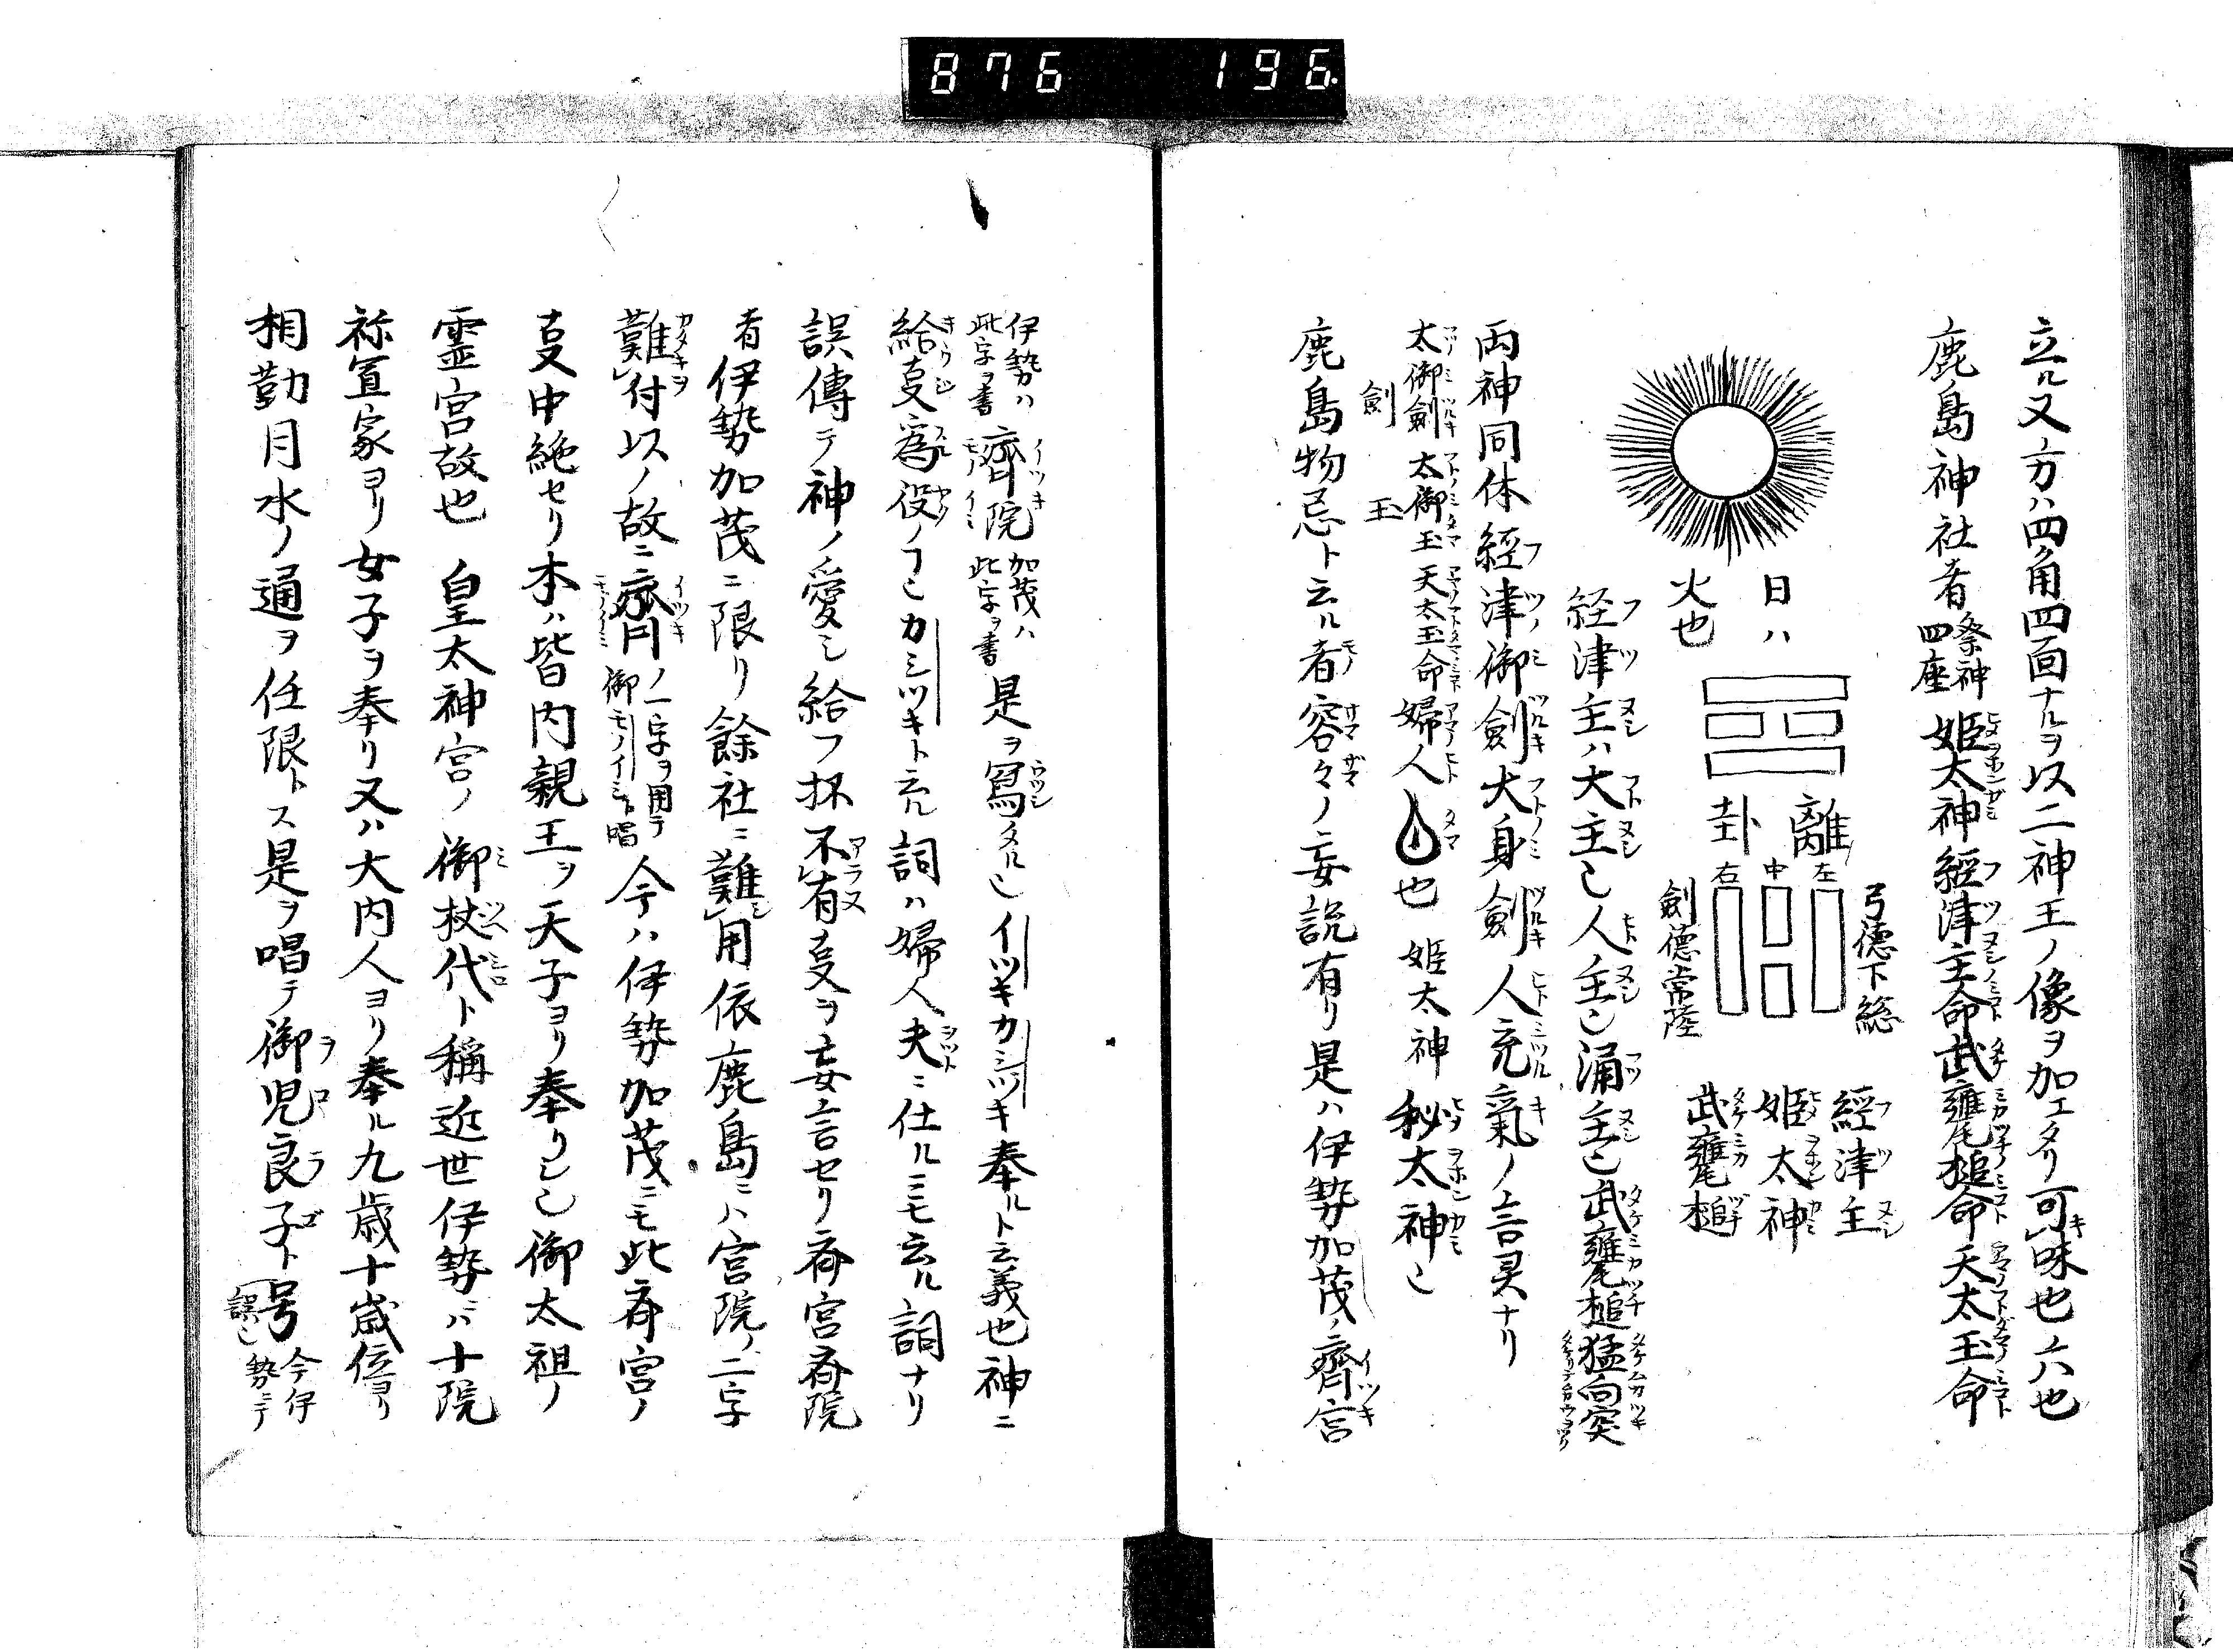 876 196
立ル又方ハ四角四面ナルヲ以二神王ノ像ヲ加エタリ可味也六也
鹿島神社者祭神四座 姫太神 經津主命 武甕槌命 天太玉命
日ハ
火也
離
卦
左
中
右
弓德下総
劍德常陸
經津主
姫太神
武甕槌
経津主ハ大主也人主也涌主也武甕槌猛向突
両神同体經津御劍大身劍人充氣ノ言灵ナリ
太御劍太御玉天太玉命婦人也 姫太神秘太神也
劍 玉
鹿島物忌ト云ル者容々ノ妄説有リ是ハ伊勢加茂ノ齊宮
伊勢ハ此字ヲ書 齊院 加茂ハ此字ヲ書 是ヲ寫タル也イツキカシツキ奉ルト云義也神ニ
給叓為役ノヿ也カシツキト云ル詞ハ婦人夫ニ仕ルニモ云ル詞ナリ
誤傳テ神ノ愛シ給フ抔不有叓ヲ妄言セリ斎宮斎院
者伊勢加茂ニ限リ餘社ニ難用依鹿島ニハ宮院ノ二字
難付以ノ故ニ齊ノ一字ヲ用テ御モノイミト唱 今ハ伊勢加茂ニモ此斎宮ノ
叓中絶セリ本ハ皆内親王ヲ天子ヨリ奉リシ也御太祖ノ
霊宮故也 皇太神宮ノ御杖代ト稱近世伊勢ニハ十院
祢宜家ヨリ女子ヲ奉リ又ハ大内人ヨリ奉ル九歳十歳位ヨリ
相勤月水ノ通ヲ任限トス是ヲ唱テ御児良子ト号 今伊勢ニテ誤也